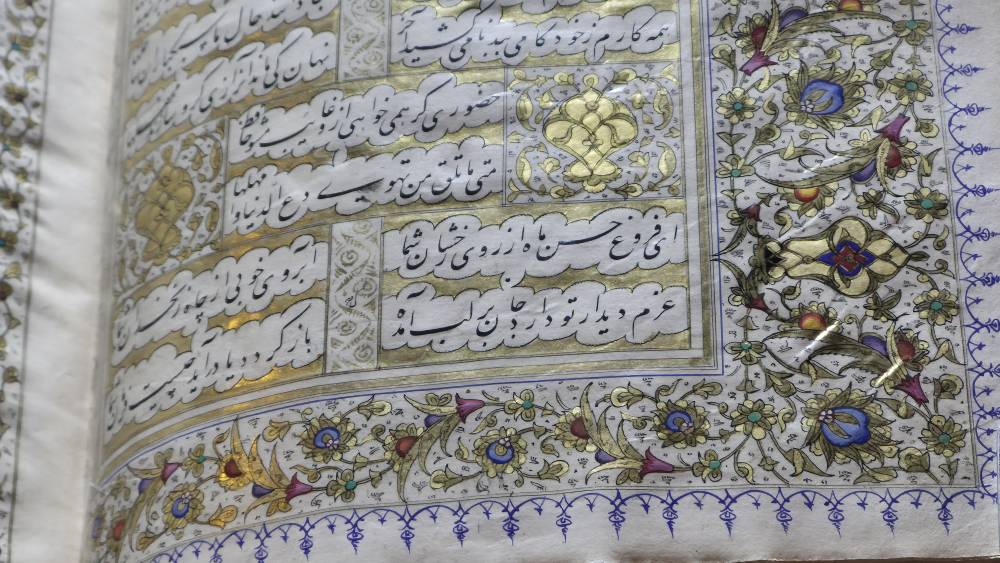 دانند حال ما سبکباران
همه کارم ز خود کامی ببدنامی کشید آخر
نهان کی ماند آن رازی کزو سازند
حضوری گر همی خواهی ازو غایب مشو حافظ
متی ما تلق من تهوی دع الدنیا و اهملها
ای فروغ حسن ماه از روی رخشان شما
آبروی خوبی از چاه زنخدان شما
عزم دیدار تو دارد جان بر لب آمده
باز گردد یا درآید چیست